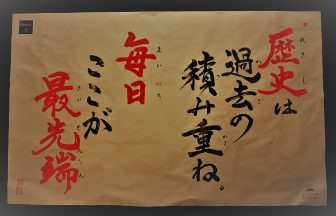 歴史は
過去の
積み重ね。
毎日
ここが
最先端